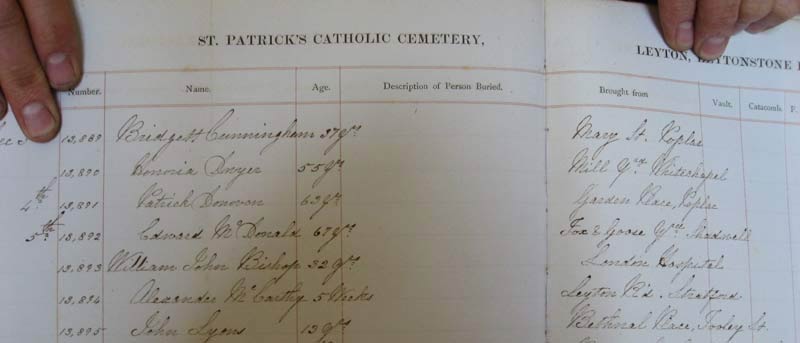 ST. PATRICK'S CATHOLIC CEMETERY, LEYTON, LEYTONSTONE
Number. Name. Age. Description of Person Buried. Brought from Vault. Catacomb. P.
13,889 Bridgett Cunningham 37 Yrs Mary St. Poplar
13,890 Honoria Dwyer 55 Yrs Mill Yard Whitechapel
4th 13,891 Patrick Donovan 63 Yrs Garden Place, Poplar
5th 13,892 Edward McDonald 67 Yrs Fox & Goose Yard Shadwell
13,893 William John Bishop 32 Yrs London Hospital
13,894 Alexander McCarthy 5 Weeks Leyton Rd. Stratford
13,895 John Lyons 13 Yrs Bethnal Place, Tooley St.